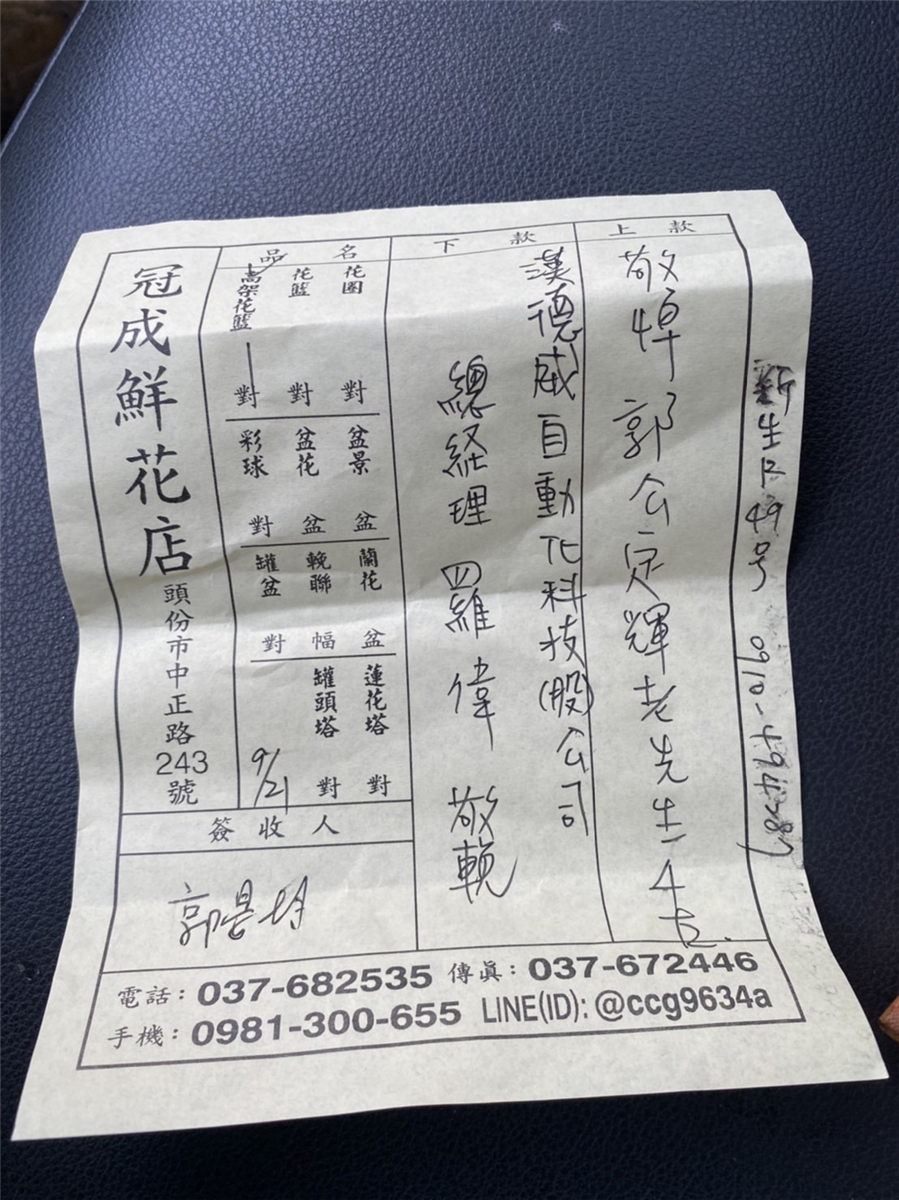 新生口49号 0910-494787
上款
敬悼郭公定輝老先生千古
下款
漢德威自動化科技(股)公司
總経理 羅偉 敬輓
品名
花圈 對
花籃 對
高架花籃 一對
盆景 盆
盆花 盆
彩球 對
蘭花 盆
輓聯 幅
罐盆 對
蓮花塔 對
罐頭塔 對
9/21
簽收人
冠成鮮花店
頭份市中正路243號
電話：037-682535 傳真：037-672446
手機：0981-300-655 LINE(ID): @ccg9634a